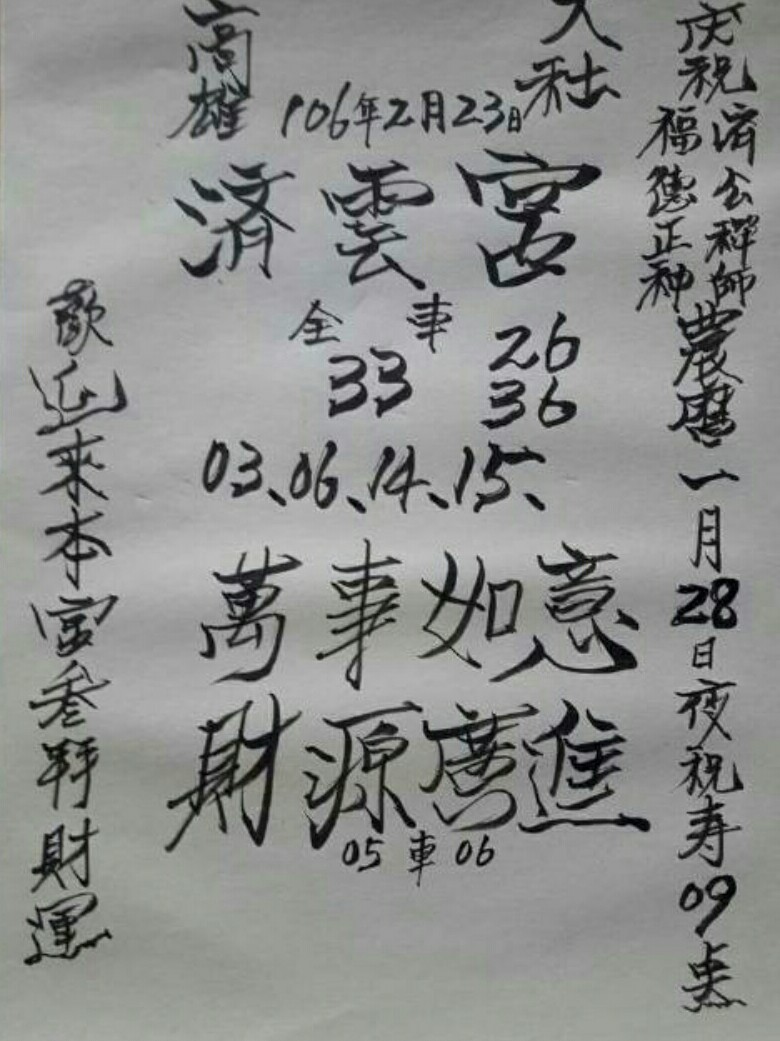 庆祝
济公禅師
福德正神
農曆一月28日夜祝寿09点
大社
高雄
106年2月23日
済雲宮
全車
33
26
36
03、06、14、15、
萬事如意
財源廣進
05車06
歡迎來本宮叄拜財運